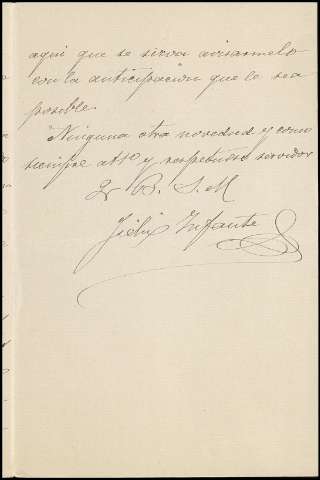 aqui que se sirva avisarmelo
con la anticipación que le sea
posible.
Ninguna otra novedad y como
siempre atto y respetuoso servidor
Q B. S. M
Félix Infante